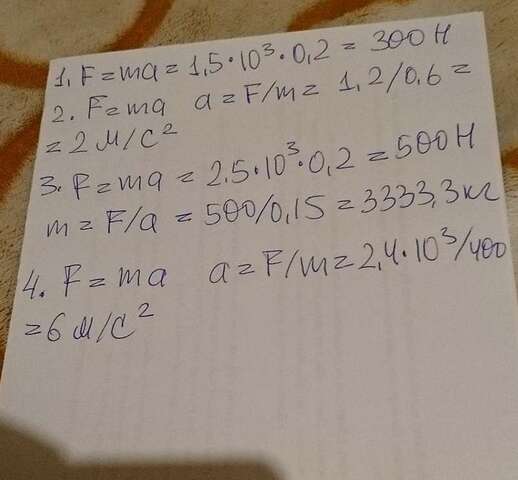 1. F=ma=1,5·10³·0,2=300Н
2. F=ma a=F/m= 1,2/0,6=
=2м/с²
3. F=ma=2.5·10³·0,2=500Н
m=F/a=500/0,15=3333,3кг
4. F=ma a=F/m=2,4·10³/400
=6м/с²